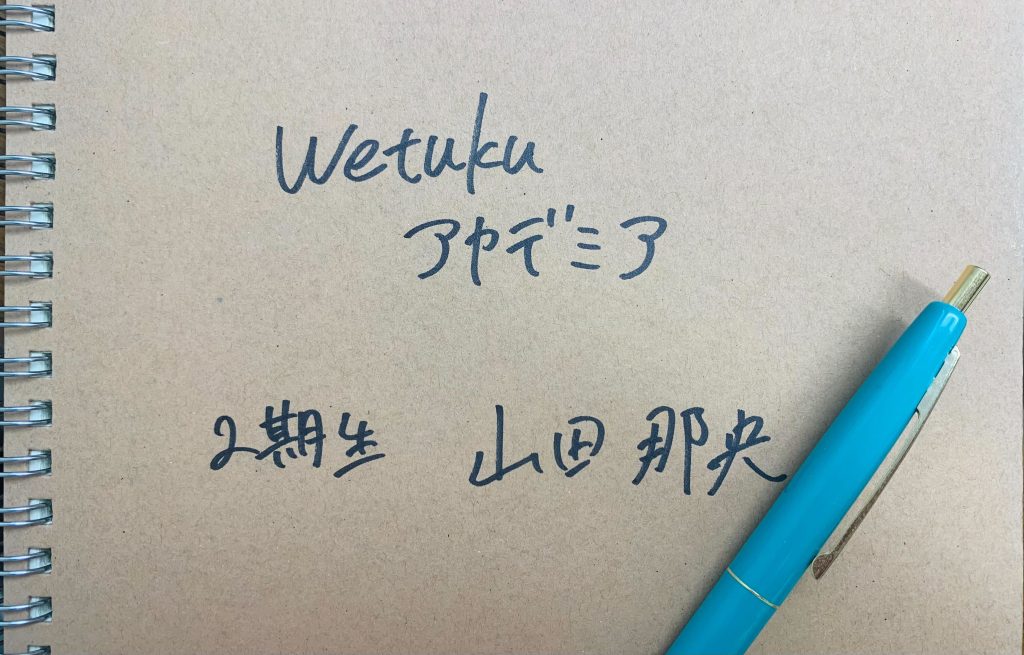 Wetuku
アカデミア
2期生 山田 那央